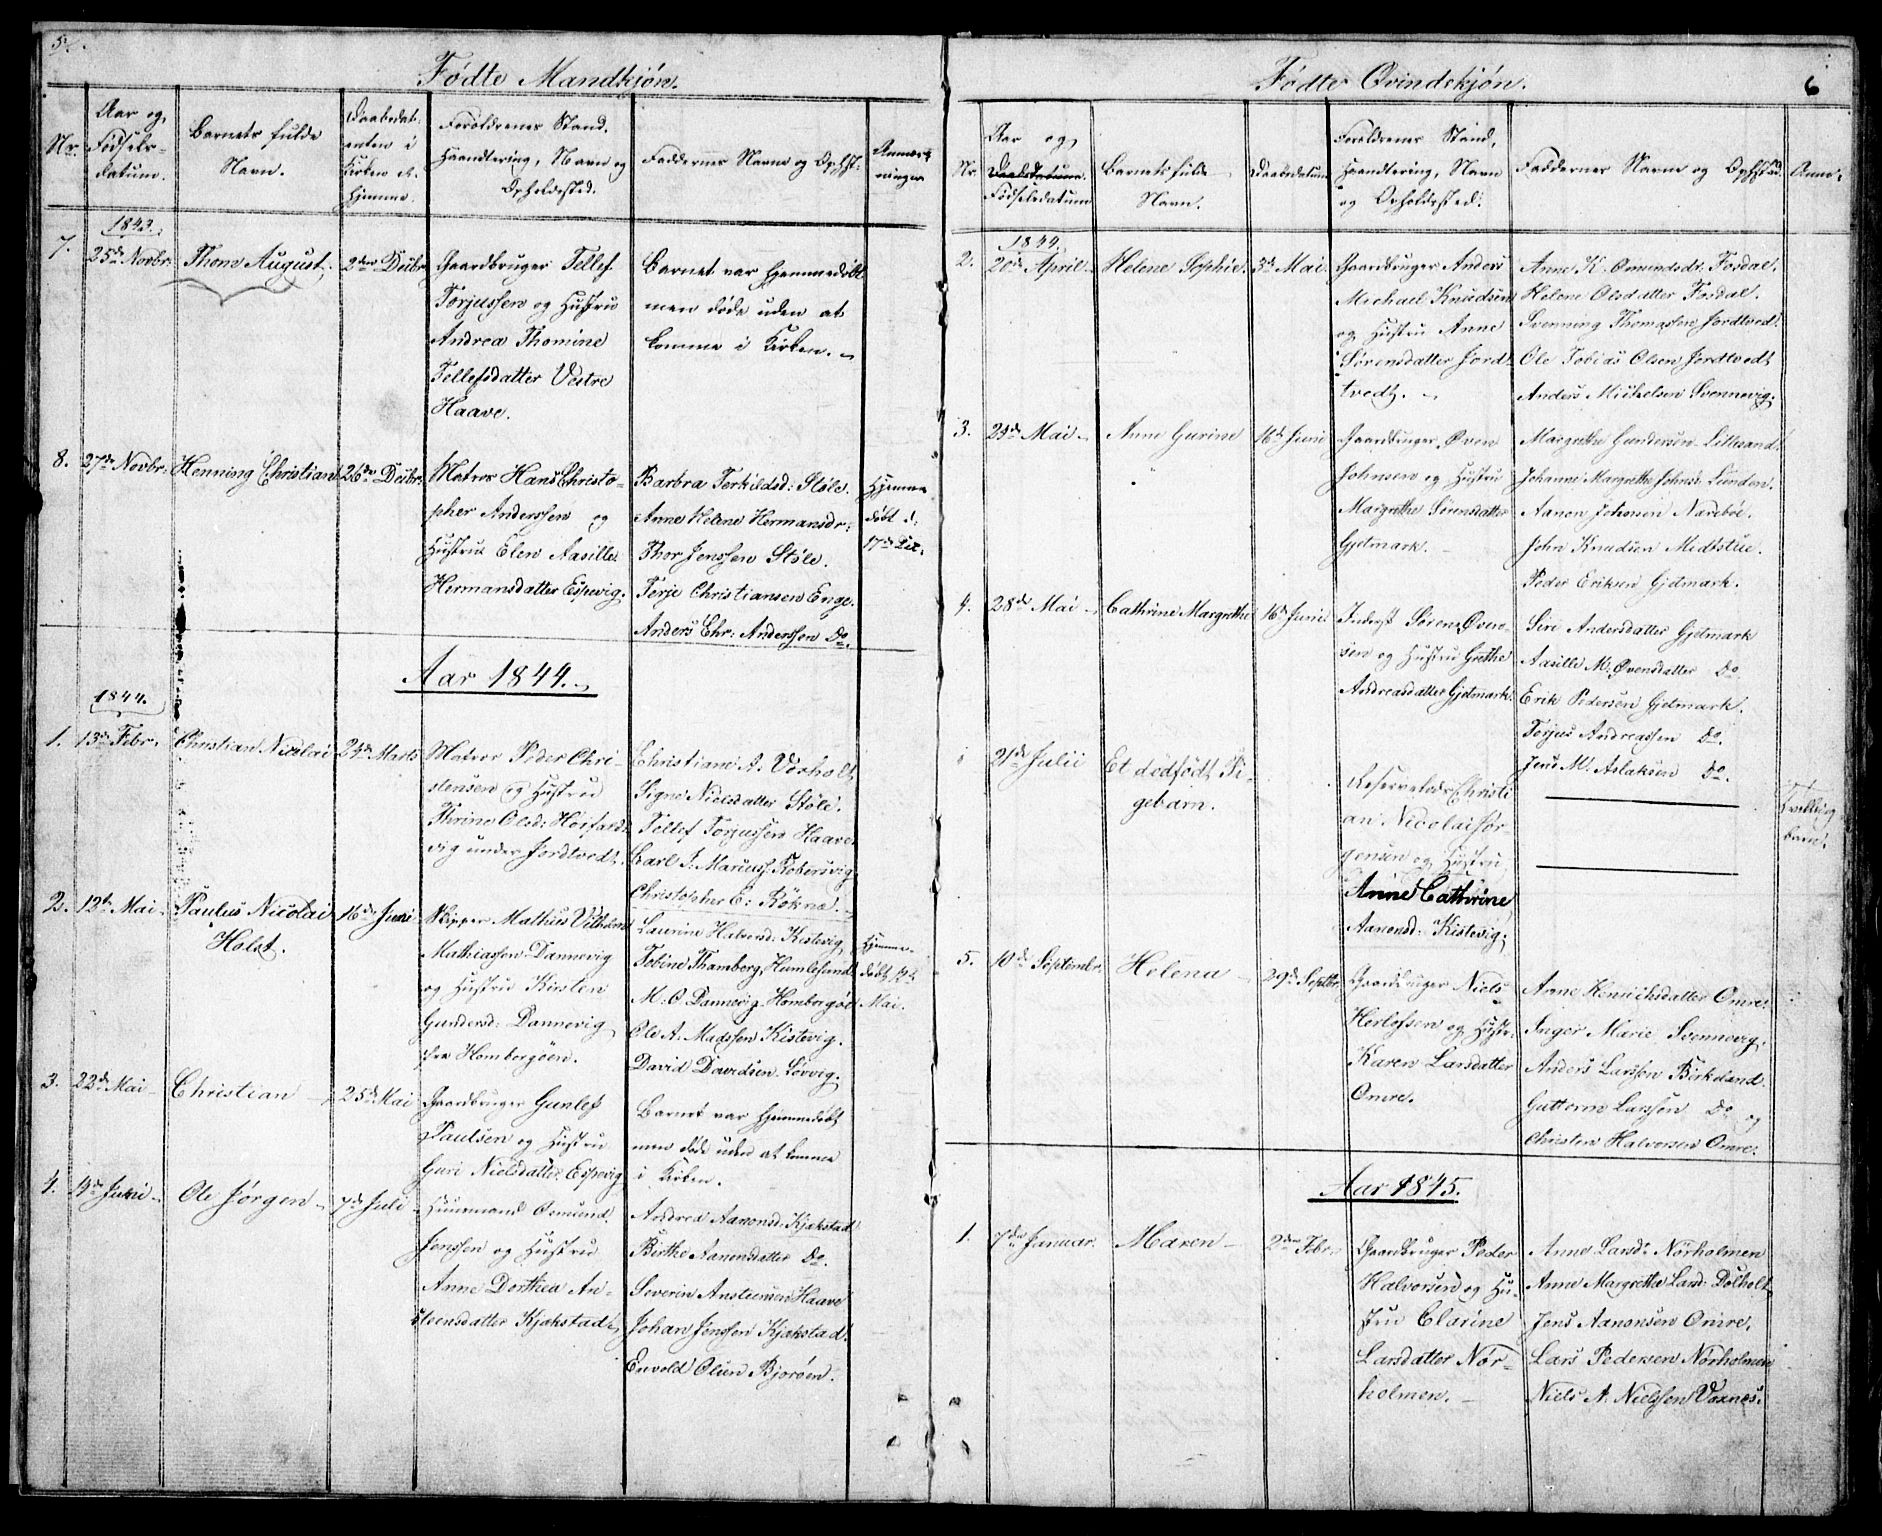 5.
Fødte Mandkjøn.
Nr.
Aar og
Fødsels-
datum.
Barnets fulde
Navn.
Daabsdat-
enten i
Kirken el.
Hjemme.
Forældrenes Stand,
Haandtering, Navn og
Opholdssted.
Faddernes Navne og Ophst:
Anmær-
ninger
1843.
7.
25de Novbr.
Thom August.
2den Decbr.
Gaardbruger Tellef
Torjussen og Hustru
Andrea Thomine
Tellefsdatter Vestre
Haave.
Barnet var hjemmedøbt
men døde uden at
komme i Kirken.
8.
27de Novbr.
Henning Christian
26de Decbr.
Matros Hans Christo-
pher Anderssen og
Hustrue Elen Aasille
Hermansdatter Espevig.
Barbra Terkildsd: Støle.
Anne Helene Hermansdr:
Thor Jenssen Støle.
Terje Christiansen Enge.
Anders Chr: Anderssen Do.
Hjemme
døbt d.
17de
Aar 1844.
1844.
1.
13de Febr.
Christian Nicolai
24de Marts
Matros Peder Chri-
stensen og Hustru
Thrine Olsd:
vig under Jordtvedt.
Christiane A. Vosholt
Signe Nielsdatter Støle.
Tellef Torjussen Haave.
Carl J. Mariuss.
Christopher C:
2.
12te Mai
Paulus Nicolai
Holst.
16de Juni
Skipper Mathias Vilhelm
Mathiassen Dannevig
og Hustru Kirsten
Gundersd: Dannevig
fra Homborgøen.
Laurine Halvorsd: Kistevig
Tobine Thamberg, Humlesund
M. C. Dannevig Homborgøen
Ole A. Madssen Kistevig.
David Davidsen Sørvig.
Hjemme-
døbt
Mai.
3.
22de Mai
Christian
25de Mai
Gaardbruger Gunlef
Paulsen og Hustru
Guri Nielsdatter Espevig
Barnet var hjemmedøbt
men døde uden at komme
i Kirken.
4.
14de Juni
Ole Jørgen
7de Juli
Huusmand Osmund
Jenssen og Hustru
Anne Dorthea An-
stensdatter Kjøkstad
Andrea Aanonsd: Kjøkstad
Birthe Aanensdatter Do.
Severin Anstensen Haave
Johan Jenssen Kjøkstad.
Envold Olsen Bjorøen.
Fødte Qvindekjøn.
6
Nr.
Aar og
Daabsdatum.
Fødselsdatum
Barnets fulde
Navn.
Daabsdatum
Forældrenes Stand,
Haandtering, Navn
og Opholdssted.
Faddernes Navne og Ophstsd.
Anm:
1844.
2.
20de April
Helene Sophie
3de Mai
Gaardbruger Anders
Michael Knudsen
og Hustru Anne
Sørensdatter Jord-
tvedt.
Anne K. Omundsdr. Fosdal.
Helene Olsdatter Fosdal.
Svenning Thomassen Jordtvedt.
Ole Tobias Olsen Jordtvedt
Anders Michelsen Svennevig.
3.
24de Mai
Anne Gurine
16de Juni
Gaardbruger Øven
Johnsen og Hustru
Margrethe Sørensdatter
Gjetmark.
Margrethe Gundersen Lillesand.
Johanne Margrethe Johnsd: Lunden.
Aanon Johnsen
John Knudsen Midtstue.
Peder Eriksen Gjetmark.
4.
28de Mai
Cathrine Margrethe
16de Juni
Inderst Søren Øven-
sen og Hustru Grethe
Andreasdatter Gjetmark.
Siri Andersdatter Gjetmark
Aasille M. Øvensdatter Do
Erik Pedersen Gjetmark.
Torjus Andreassen Do.
Jens M. Aslaksen Do.
21de Julii
Et dødfødt Pi-
gebarn.
Christi
an Nicolai Jør
gensen og Hustru
Anne Cathrine
Aanonsd: Kistevig.
Tvilling
barn.
5.
10de Septembr.
Helena
29de Septbr.
Gaardbruger Niels
Herlofsen og Hustr.
Karen Larsdatter
Omre.
Anne Henrichsdatter Omre.
Inger Marie Svennevig.
Anders Larssen Birkeland.
Guttorm Larssen Do og
Christen Halvorsen Omre.
Aar 1845.
1.
7de Januar
Maren
2den Febr.
Gaardbruger Peder
Halvorsen og Hu-
stru Clarine
Larsdatter Nør-
holmen.
Anne Larsd: Nørholmen
Anne Margrethe Larsd: Dølholt
Jens Aanonsen Omre.
Lars Pedersen Nørholmen
Niels A. Nielssen Vaxnes.